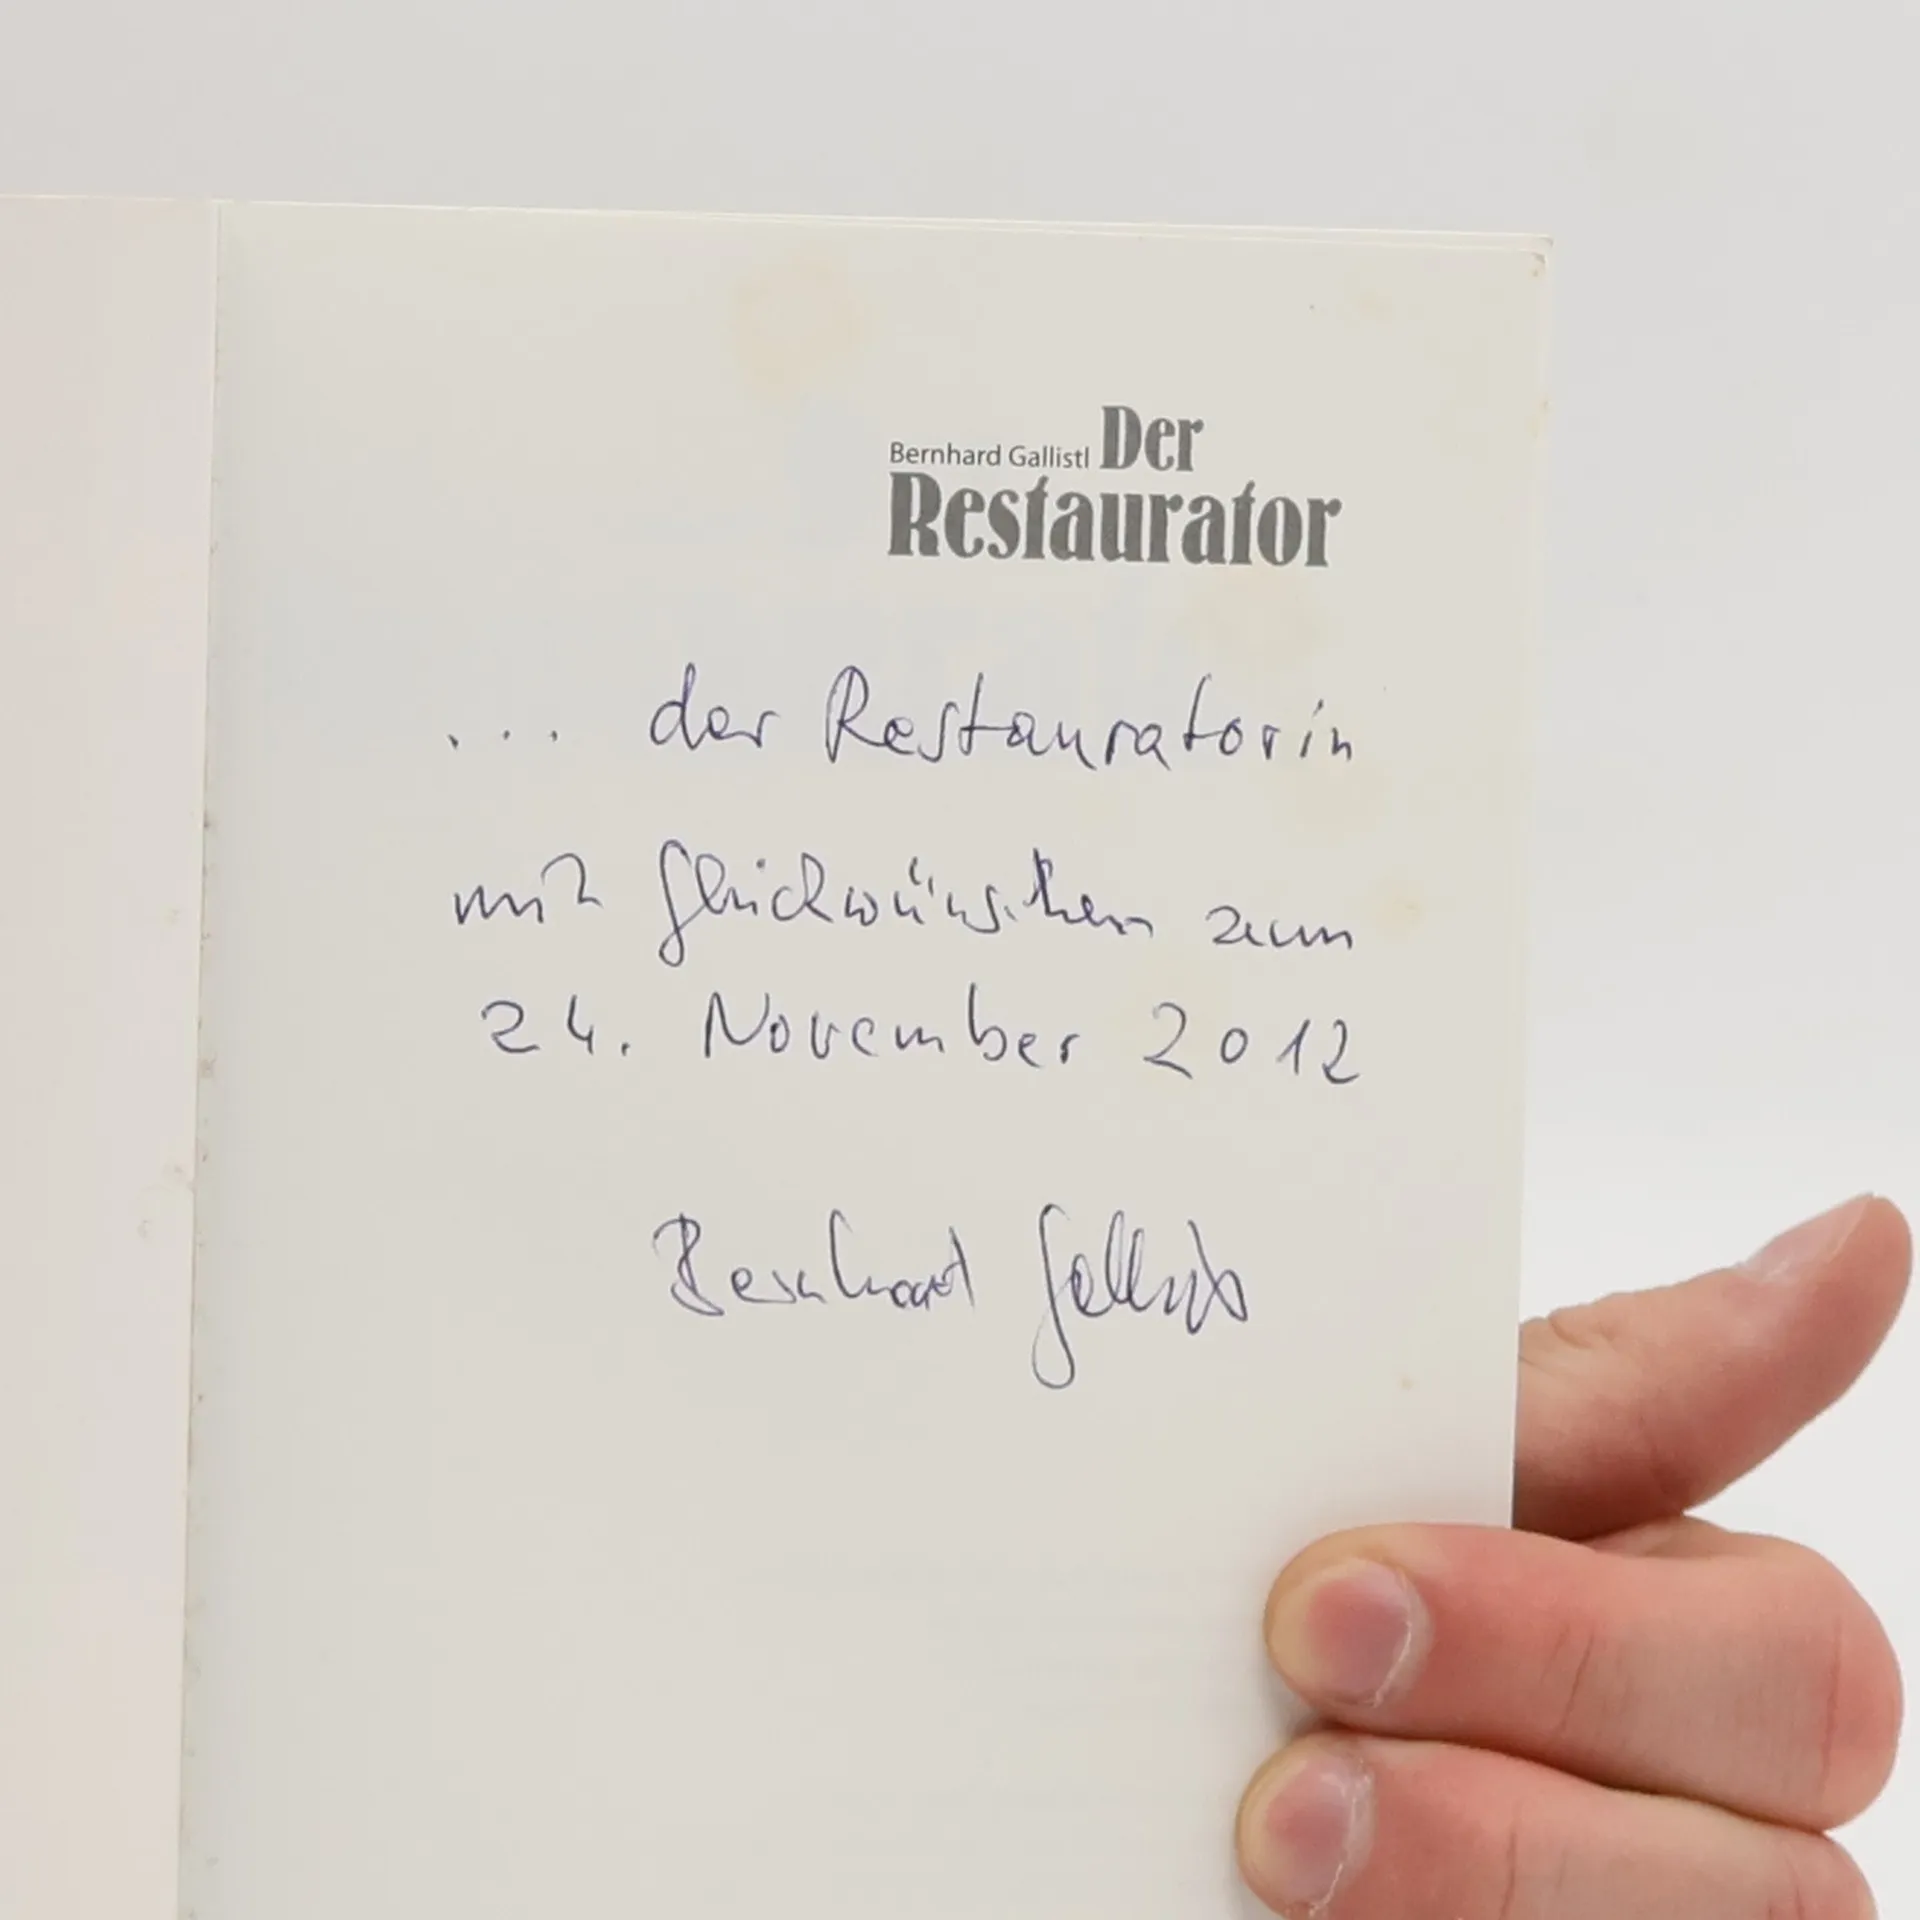 Bernhard Gallistl Der
Restaurator
... der Restauratorin
mit Glückwünschen zum
24. November 2012
Bernhard Gallistl